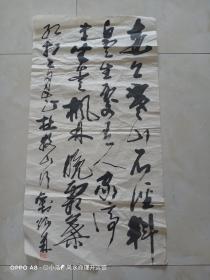 远上寒山石径斜
白云生处有人家停
车坐爱枫林晚霜叶
红于二月花杜牧山行
OPPO A8